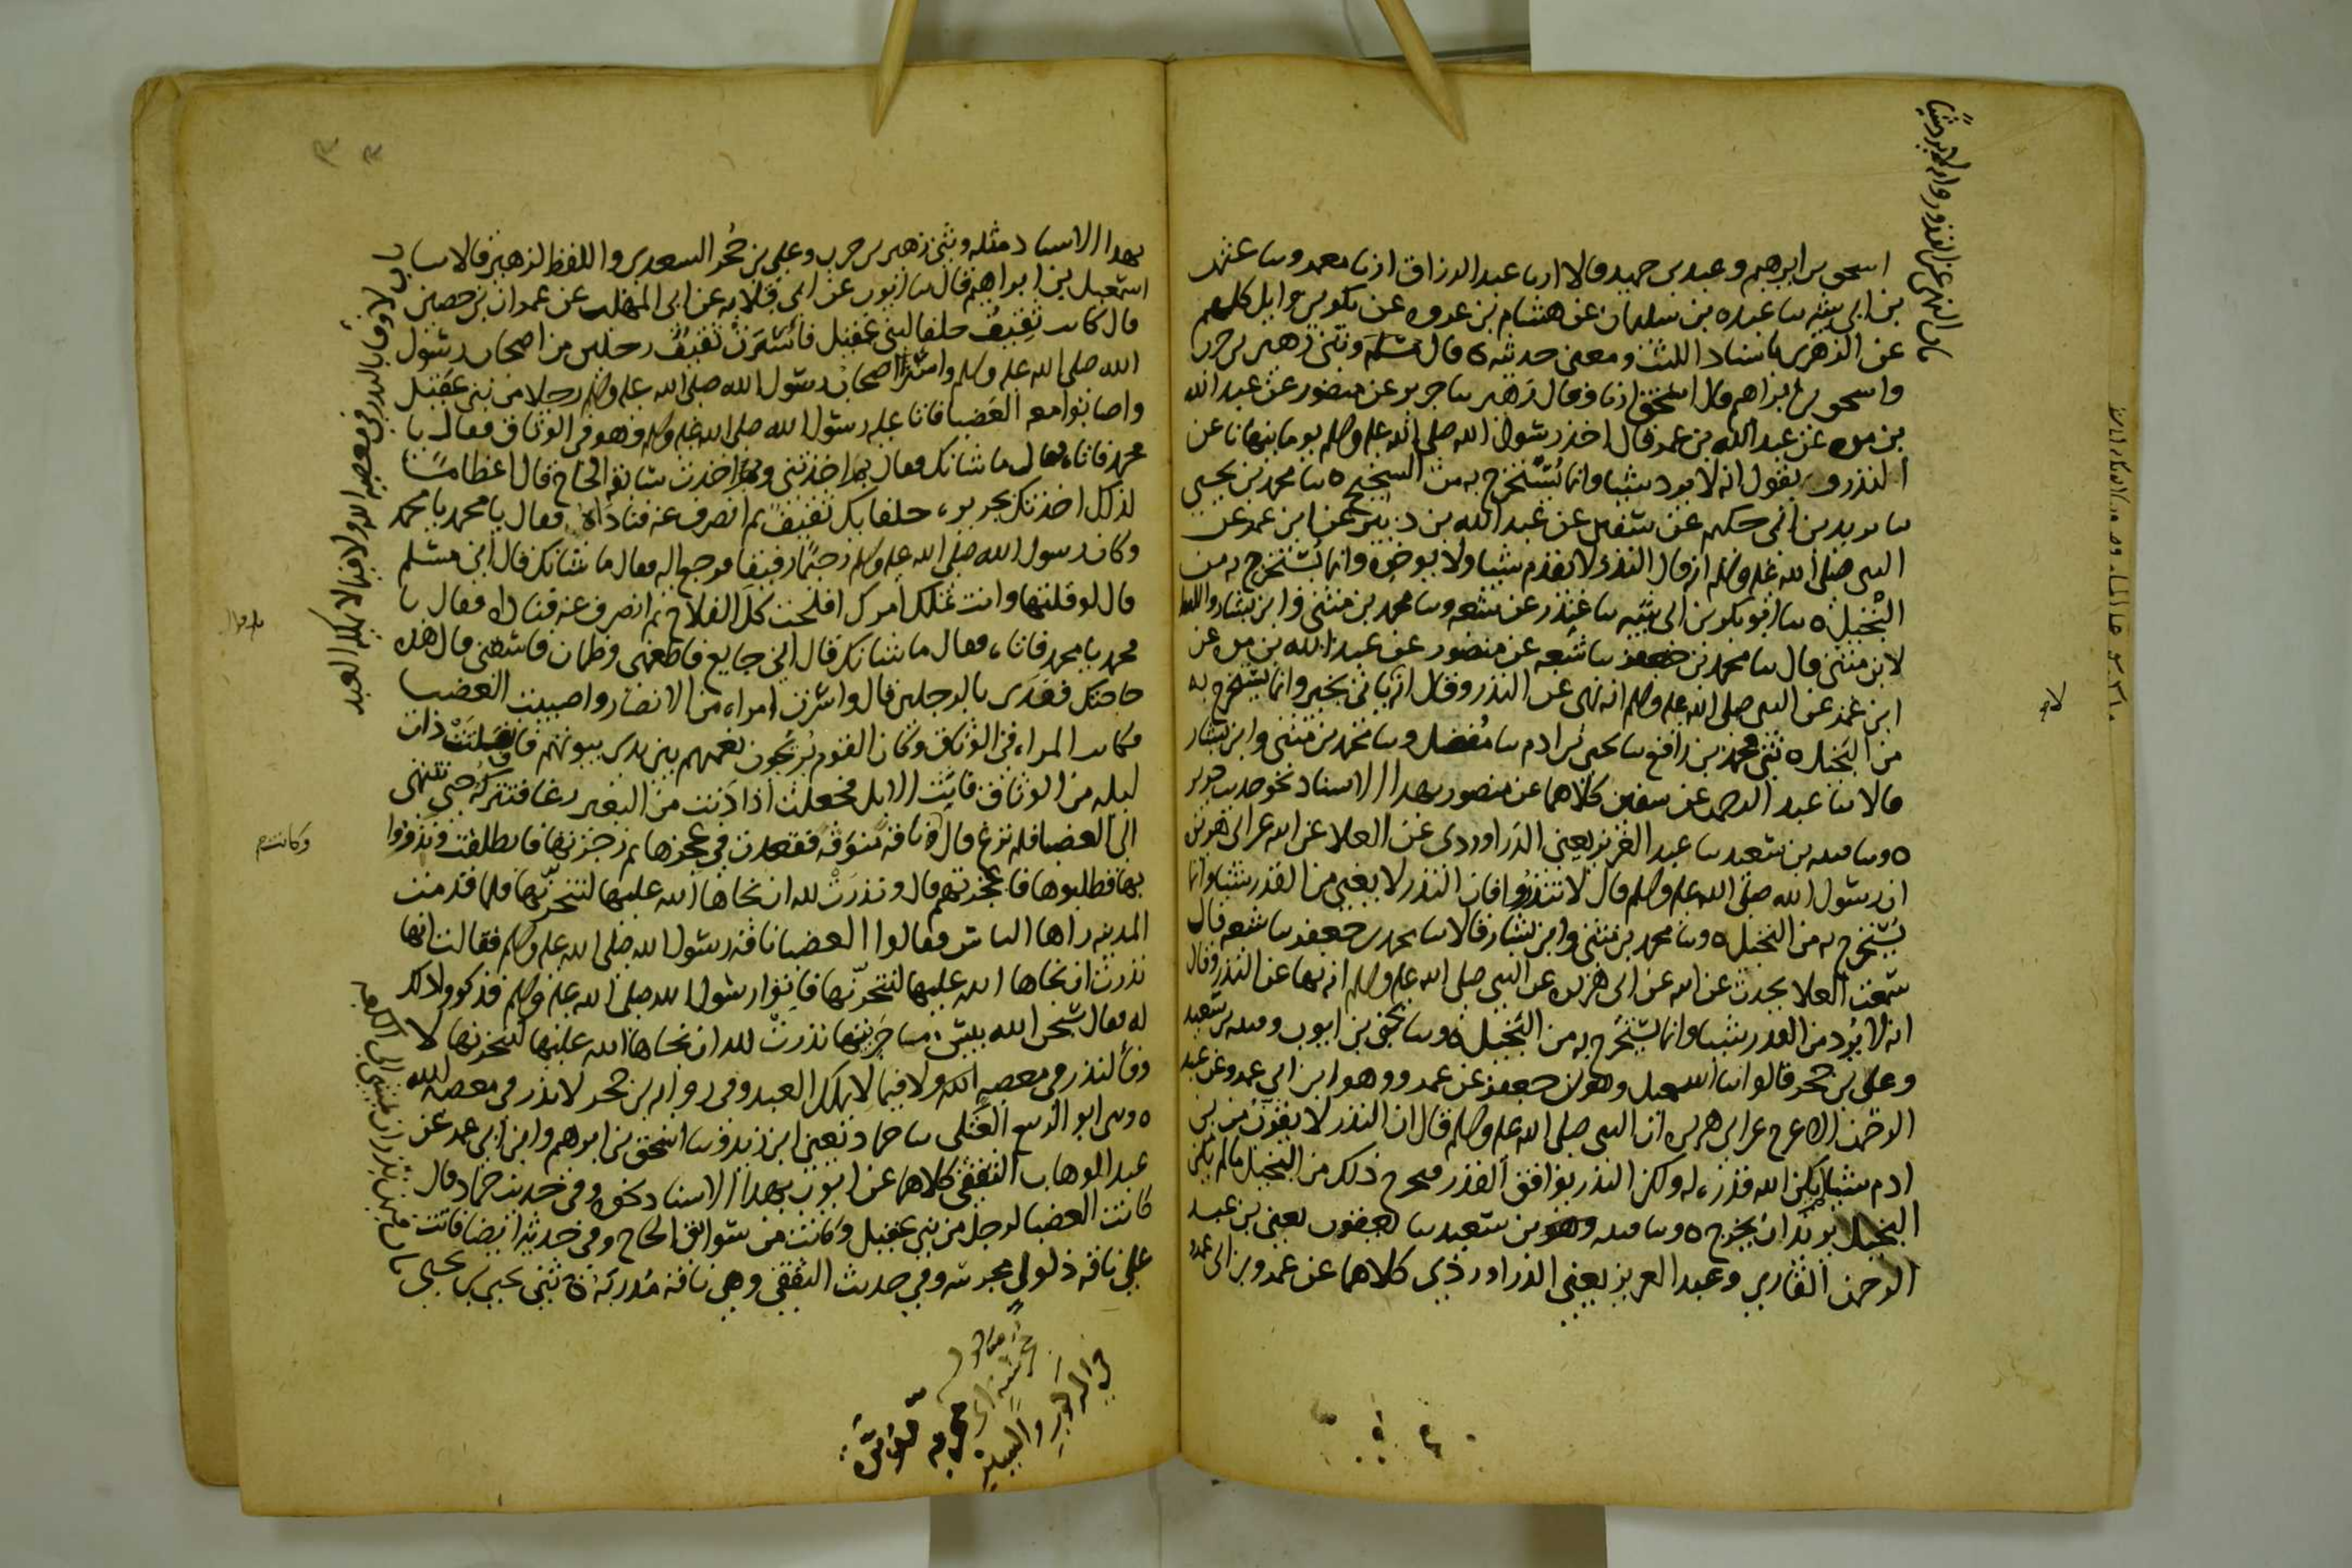 باب النذر عن القدر وانه لا يرد شيئا
اسحق بن ابرهيم وعبد بن حميد قالا انا عبد الرزاق انا معمر وثنا عثمن
بن ابي شيبه ثنا عبده بن سليمان عن هشام بن عروه عن بكر بن وايل كلهم
عن الزهرى باسناد الليث ومعنى حديثه ه قال مسلم وثنى زهير بن حرب
واسحق بن ابراهم قال اسحق انا وقال زهير ثنا جرير عن منصور عن عبد الله
بن مره عن عبد الله بن عمر قال اخذ رسول الله صلى الله عليه وسلم يوما ينهانا عن
النذر ويقول انه لا يرد شيئا وانما يستخرج به من الشحيح ه ثنا محمد بن يحيى
ثنا يزيد بن ابى حكيم عن سفين عن عبد الله بن دينر عن ابن عمر عن
النبى صلى الله عليه وسلم انه قال النذر لا يقدم شيئا ولا يوخره وانما يستخرج به من
البخيل ه ثنا ابو بكر بن ابى شيبه ثنا غندر عن شعبه وثنا محمد بن مثنى وابن بشار واللفظ
لابن مثنى قال ثنا محمد بن جعفر ثنا شعبه عن منصور عن عبد الله بن مره عن
ابن عمر عن النبى صلى الله عليه وسلم انه نهى عن النذر وقال انه لا ياتى بخير وانما يستخرج به
من البخيل ه ثنى محمد بن رافع ثنا يحيى بن ادم ثنا مفضل وثنا محمد بن مثنى وابن بشار
قالا ثنا عبد الرحمن عن سفين كلاهما عن منصور بهذا الاسناد نحو حديث جرير
ه وثنا قتيبه بن سعيد ثنا عبد العزيز يعنى الدراوردى عن العلا عن ابيه عن ابى هريره
ان رسول الله صلى الله عليه وسلم قال لا تنذروا فان النذر لا يغنى من القدر شيئا وانما
يستخرج به من البخيل ه وثنا محمد بن مثنى وابن بشار قالا ثنا محمد بن جعفر ثنا شعبه قال
سمعت العلا يحدث عن ابيه عن ابى هريره عن النبى صلى الله عليه وسلم انه نهى عن النذر وقال
انه لا يرد من القدر شيئا وانما يستخرج به من البخيل ه وثنا يحيى بن ايوب وقتيبه بن سعيد
وعلى بن حجر قالوا ثنا اسمعيل وهو بن جعفر عن عمرو وهو ابن ابي عمرو عن عبد
الرحمن الاعرج عن ابى هريره ان النبى صلى الله عليه وسلم قال ان النذر لا يقرب من بن
ادم شيئا لم يكن الله قدره له ولكن النذر يوافق القدر فيخرج ذلك من البخيل ما لم يكن
البخيل يريد ان يخرج ه وثنا قتيبه وهو بن سعيد ثنا يعقوب يعنى بن عبد
الرحمن القاري وعبد العزيز يعنى الدراوردى كلاهما عن عمرو بن ابى عمرو
بهذا الاسناد مثله وثنى زهير بن حرب وعلى بن حجر السعدى واللفظ لزهير قالا ثنا
اسمعيل بن ابراهيم قال ثنا ايوب عن ابى قلابه عن ابى المهلب عن عمران بن حصين
قال كانت ثقيف حلفا لبنى عقيل فاسرت ثقيف رجلين من اصحاب رسول
الله صلى الله عليه وسلم واسر اصحاب رسول الله صلى الله عليه وسلم رجلا من بنى عقيل
واصابوا معه العضبا فاتا عليه رسول الله صلى الله عليه وسلم وهو فى الوثاق فقال يا
محمد فاتاه فقال ما شانك فقال بما اخذتنى وبما اخذت سابقه الحاج قال اعظاما
لذلك اخذتك بجريره حلفايك ثقيف ثم انصرف عنه فناداه فقال يا محمد يا محمد
وكان رسول الله صلى الله عليه وسلم رحيما رفيقا فرجع اليه فقال ما شانك قال انى مسلم
قال لو قلتها وانت تملك امرك افلحت كل الفلاح ثم انصرف عنه فناداه فقال يا
محمد يا محمد فاتاه فقال ما شانك قال انى جايع فاطعمنى وظمان فاسقنى قال هذه
حاجتك ففدى بالرجلين قال واسرت امراه من الانصار واصيبت العضبا
فكانت المراه فى الوثاق وكان القوم يريحون نعمهم بين يدى بيوتهم فانفلتت ذات
ليله من الوثاق فاتت الابل فجعلت اذا دنت من البعير رغا فتتركه حتى تنتهى
الى العضبا فلم ترغ قال وناقه منوقه فقعدت فى عجزها ثم زجرتها فانطلقت ونذروا
بها فطلبوها فاعجزتهم قال ونذرت لله ان نجاها الله عليها لتنحرنها فلما قدمت
المدينه راها الناس فقالوا العضبا ناقه رسول الله صلى الله عليه وسلم فقالت انها
نذرت ان نجاها الله عليها لتنحرنها فاتوا رسول الله صلى الله عليه وسلم فذكروا ذلك
له فقال سبحن الله بيس ما جزيتها نذرت لله ان نجاها الله عليها لتنحرنها لا
وفا لنذر فى معصيه الله ولا فيما لا يملك العبد وفى روايه بن حجر لا نذر فى معصيه الله
ه وثنى ابو الربيع العتكى ثنا حماد يعنى ابن زيد وثنا اسحق بن ابراهم وابن ابى عمر عن
عبد الوهاب الثقفى كلاهما عن ايوب بهذا الاسناد نحوه وفى حديث حماد قال
كانت العضبا لرجل من بنى عقيل وكانت من سوابق الحاج وفى حديثه ايضا فاتت
على ناقه ذلول مجرسه وفى حديث الثقفى وهى ناقه مدربه ه ثنى يحيى بن يحيى
باب لا وفا لنذر فى معصيه الله ولا فيما لا يملك العبد
باب من نذر ان يمشى الى الكعبه
وكانت